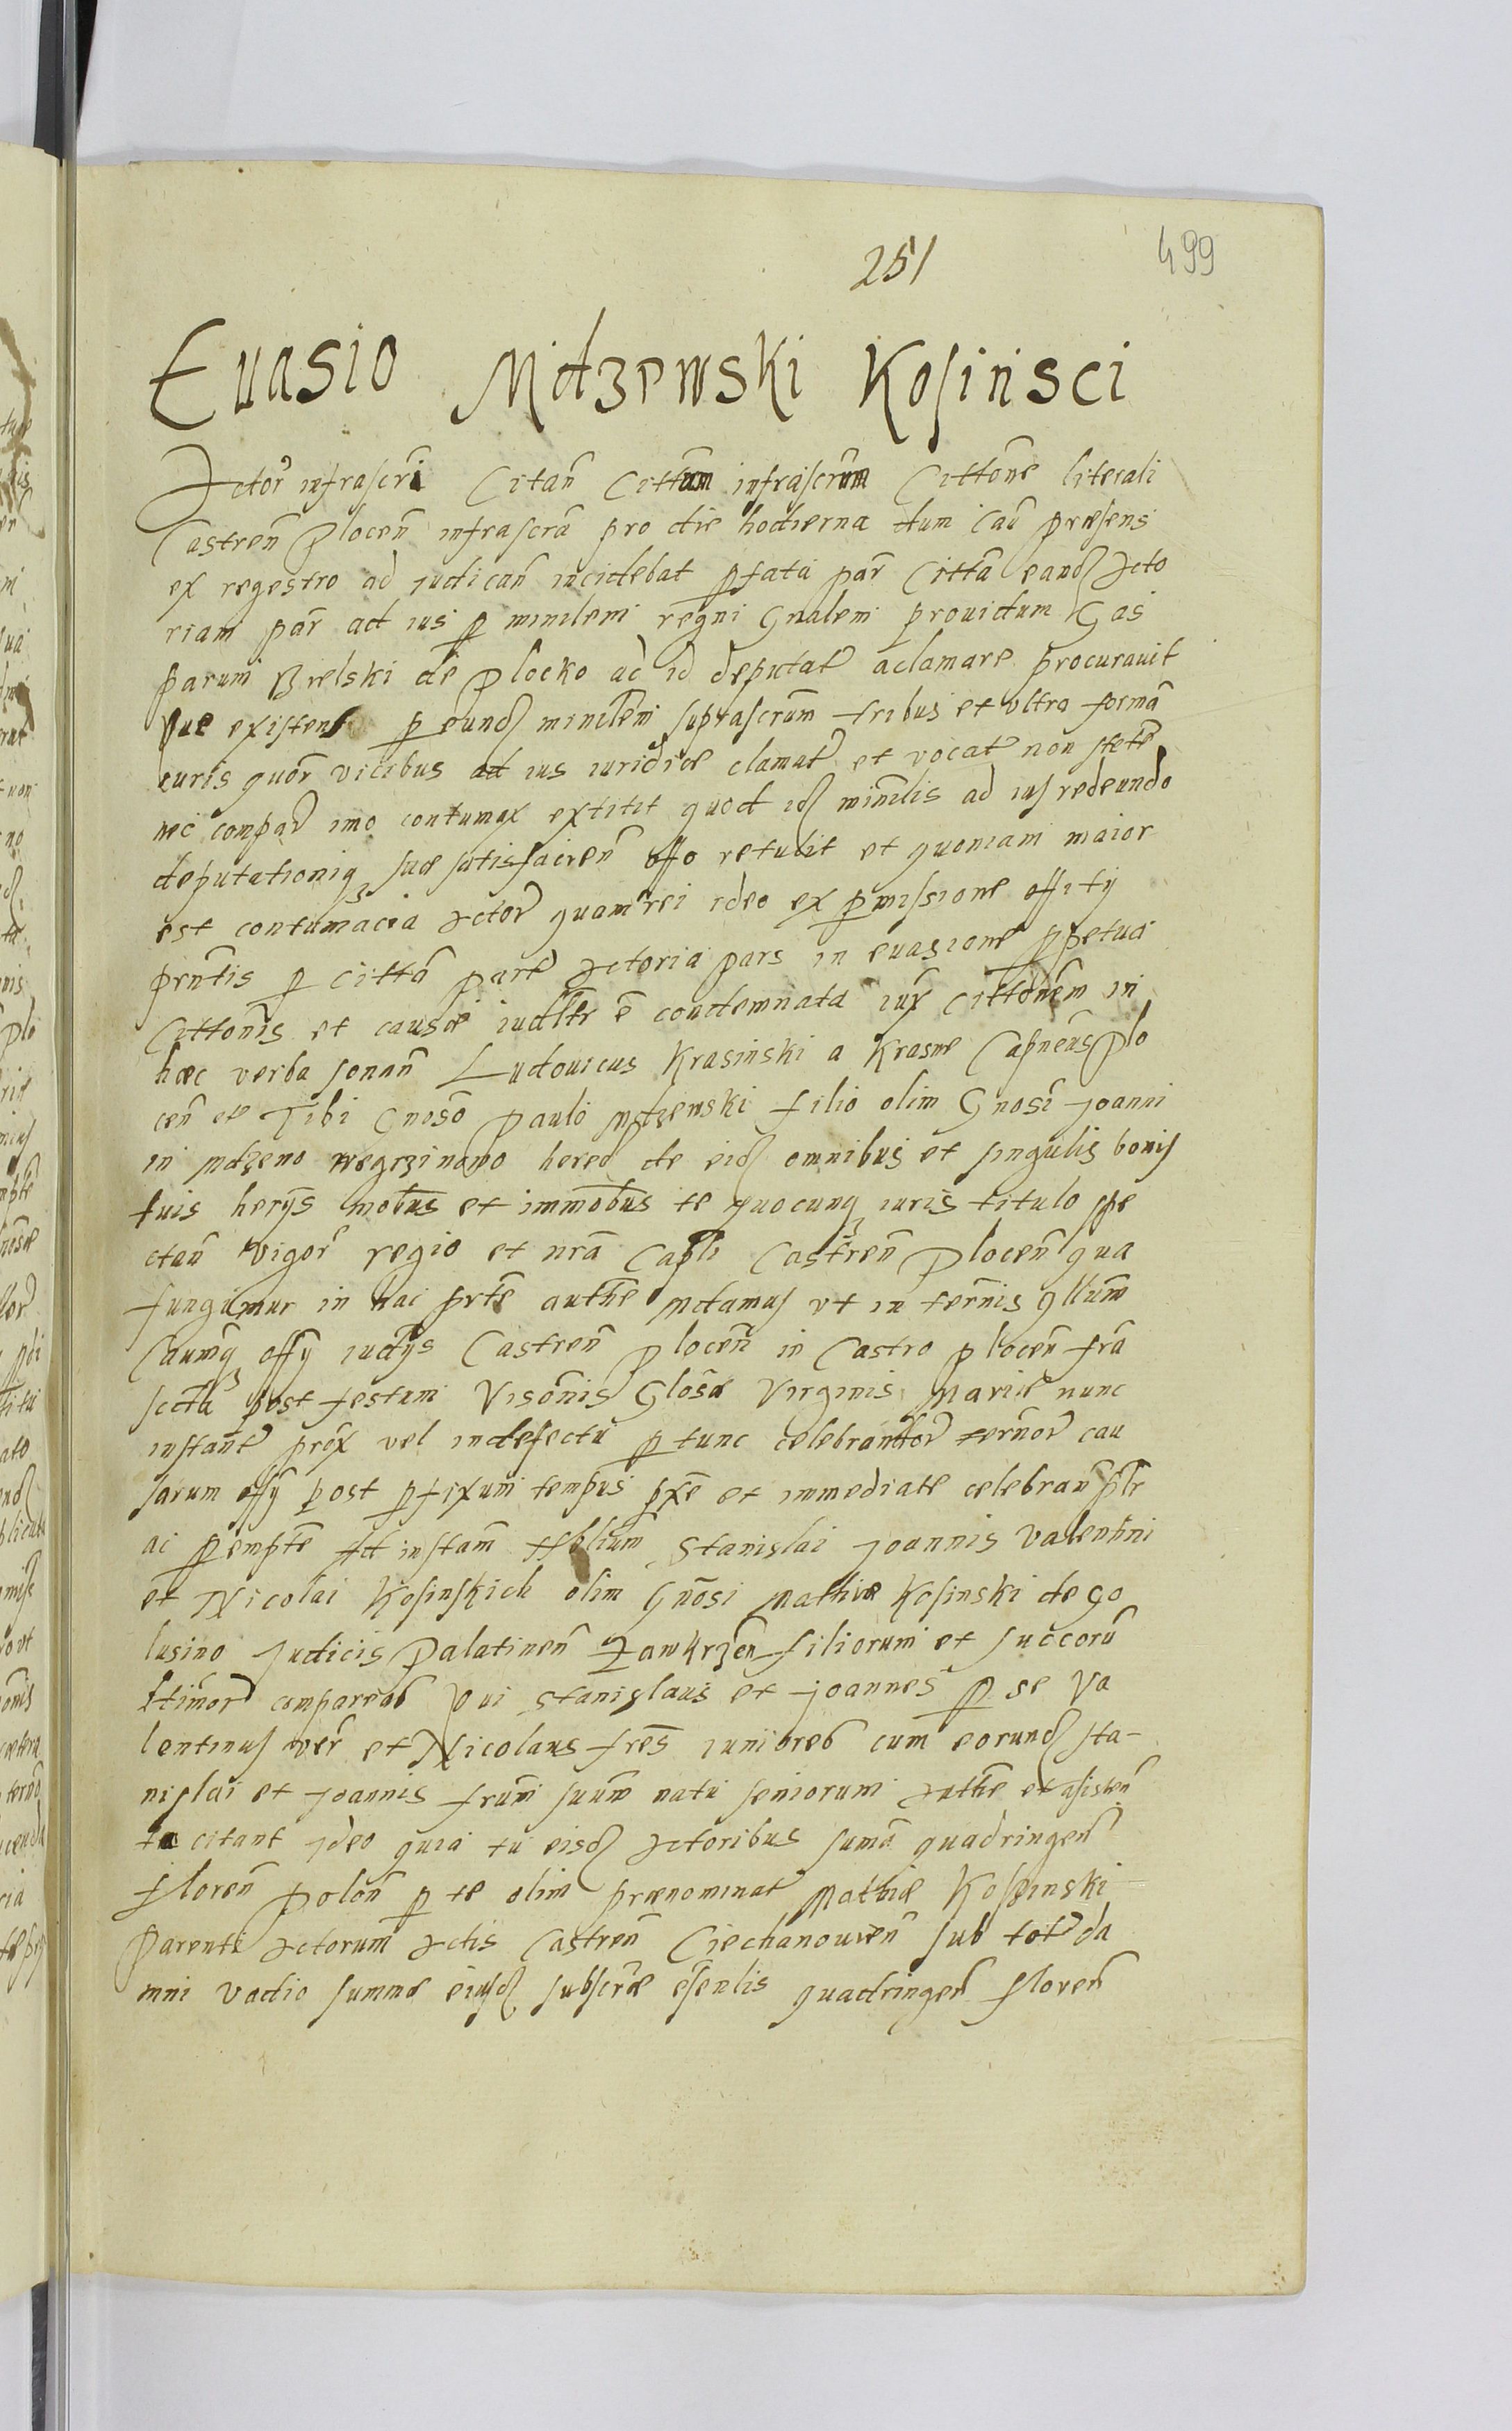 251
499
Euasio Mdzewski Kosinsci
Actor infrascri Citan Cittum infrascrum Cittone literali
Castren Plocen infrascra pro die hodierna dum cau præsens
ex regestro ad iudican incidebat pfata par Citta eand Acto
riam par ad ius p minlem regni Gnalem prouidum Gas
parum Bielski de Plocko ad id deputat aclamare procurauit
Quæ existens p eund minlem suprascrum tribus et vltra forma
iuris quor vicibus ad ius iuridice clamat et vocat non stete
nec compar imo contumax extitit quod id minlis ad ius redeundo
deputationiq suæ satisfacien offo retulit et quoniam maior
est contumacia Actor quam rei ideo ex pmissione offity
pntis p citta part Actoria pars in euasione ppetua
Cittonis et causæ iudltr e condemnata iux cittonem in
hæc verba sonan Ludouicus Krasinski a Krasne Capneus Plo
cen et Tibi Gnoso Paulo Mdzewski filio olim Gnosi Joanni
in Mdzewo Wegrzinowo hered de eid omnibus et singulis bonis
tuis herijs mobus et immobus te quocunq iuris titulo spe
ctan vigor regio et nra Capli Castren Plocen qua
fungimur in hac prte authe Mdamus vt in ternis qllum
Caumq offy iudijs Castren Plocen in Castro plocen fra
sctda post festum Visonis Glosæ Virginis Mariæ nunc
instant prox vel in defectu p tunc celebrandor ternor cau
sarum offy post pfixum tempus pxe et immediate celebran pltr
ac pempte Ad instam Nblium Stanislai Joannis Valentini
et Nicolai Kosinskich olim Gnosi Mathiæ Kosinski de Go
lusino Judicis Palatinen Zawkrzen filiorum et succoru
ltimor compareas Qui Stanislaus et Joannes p se Va
lentinus ver et Nicolaus fres iuniores cum eorund sta-
nislai et Joannis frum suum natu seniorum Authe et asisten
te citant Ideo quia tu eisd Actoribus suma quadringen
floren polon p te olim prænominat Mathiæ Kosinski
Parenti Actorum Actis Castren Ciechanouien sub tot da
mni vadio summæ eiusd subscræ esenlis quadringen floren